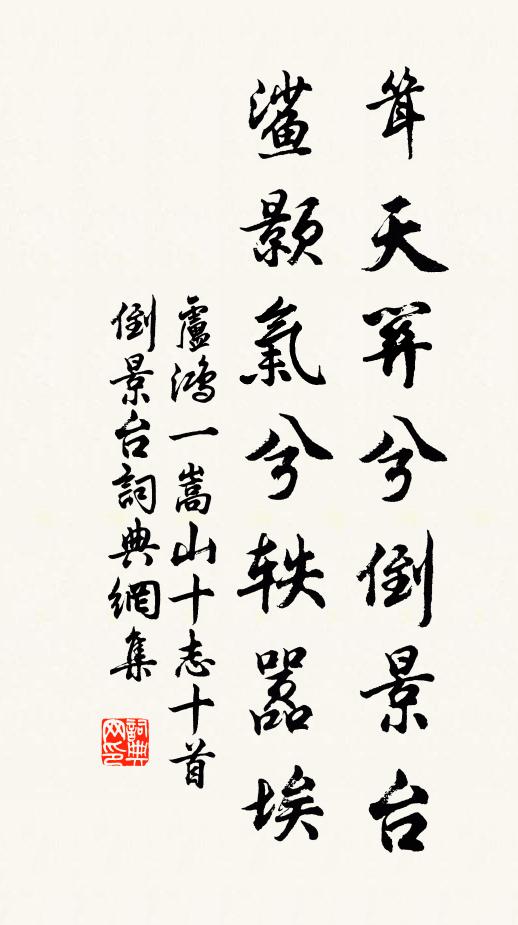 耸天关兮倒景台
鯊顥氣兮軼嚣埃
盧鴻一嵩山十志十首
倒景台詞典網集
詞典网印